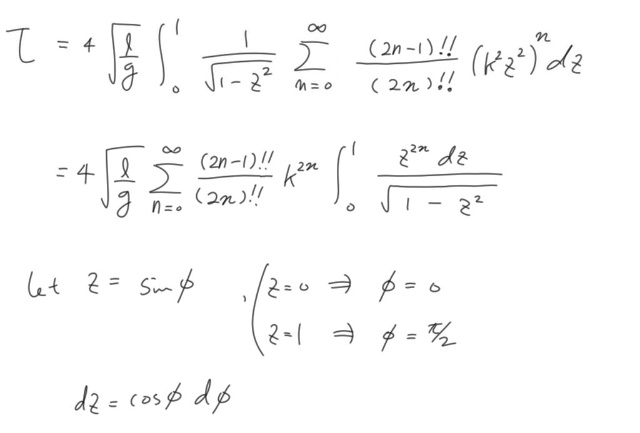 τ = 4 √(l/g) ∫₀¹ 1/√(1 - z²) ∑_{n=0}^{∞} (2n-1)!!/(2n)!! (k²z²)ⁿ dz
= 4 √(l/g) ∑_{n=0}^{∞} (2n-1)!!/(2n)!! k²ⁿ ∫₀¹ z²ⁿ dz/√(1 - z²)
let z = sinϕ , ( z=0 ⇒ ϕ = 0
z=1 ⇒ ϕ = π/2
dz = cosϕ dϕ